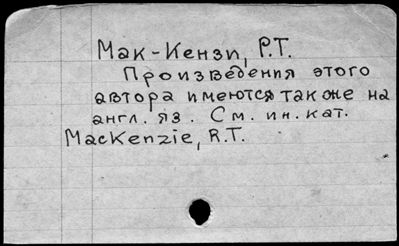 Мак-Кензи, Р.Т.
Произведения этого
автора имеются также на
англ. яз. См. ин. кат.
MacKenzie, R.T.